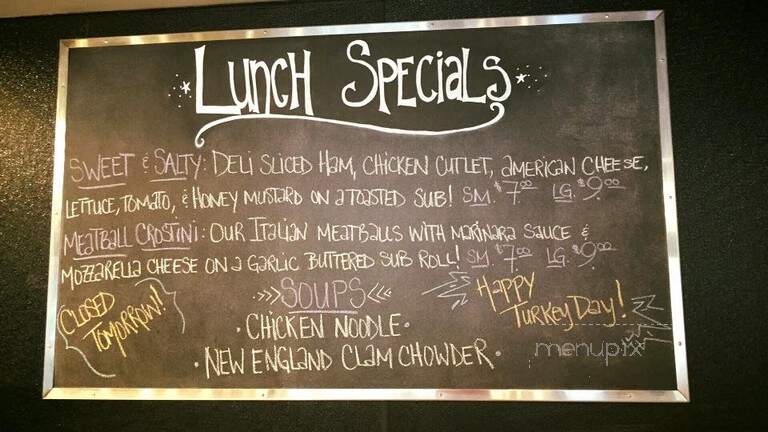 Lunch Specials
Sweet & Salty: Deli Sliced Ham, Chicken Cutlet, American Cheese,
Lettuce, Tomato, & Honey Mustard on a Toasted Sub! Sm. $7.00 Lg. $9.00
Meatball Crostini: Our Italian Meatballs with Marinara Sauce &
Mozzarella Cheese on a Garlic Buttered Sub Roll! Sm. $7.00 Lg. $9.00
>>> Soups <<<
Closed
Tomorrow!!
• Chicken Noodle •
• New England Clam Chowder •
Happy
Turkey Day!
menupix